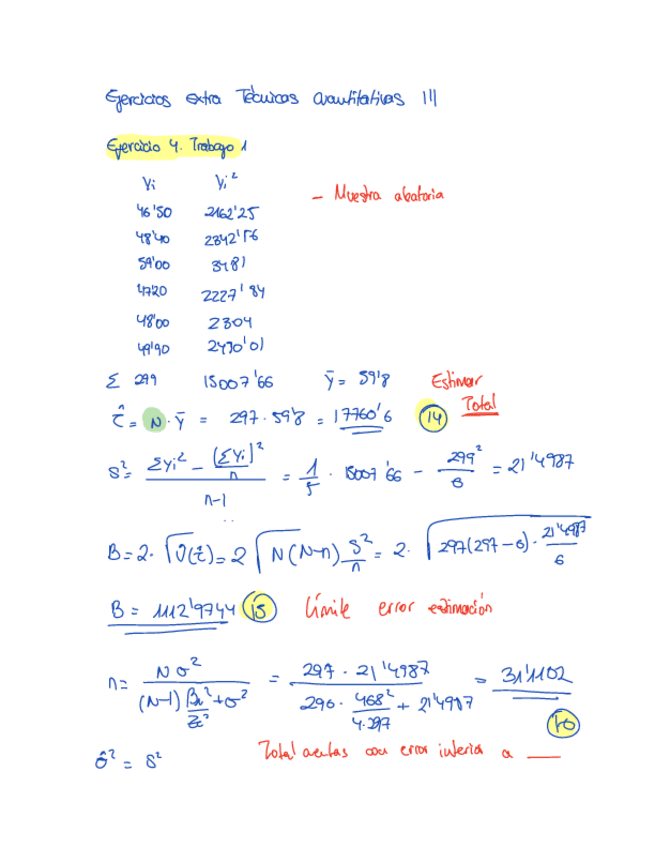 Ejercicios extra Técnicas cuantitativas III
Ejercicio 4. Trabajo 1
Yi Yi²
- Muestra aleatoria
46'50 2162'25
48'40 2342'56
59'00 3481
47'20 2227'84
48'00 2304
49'90 2490'01
Σ 299 15007'66 ȳ = 59'8 Estimar Total
τ̂ = N · ȳ = 297 · 59'8 = 17760'6 (14)
S² = (Σyi² - (Σyi)²/n) / (n-1) = 1/5 · 15007'66 - 299²/6 = 21'4987
B = 2 · √V̂(τ̂) = 2 √(N(N-n) S²/n) = 2 · √(297(297-6) · 21'4987/6)
B = 1112'9744 (15) límite error estimación
n = Nσ² / ((N-1) B²/Z² + σ²) = 297 · 21'4987 / (296 · 468²/4·297 + 21'4987) = 31'1102
(16)
σ̂² = S² Total ventas con error inferior a ___